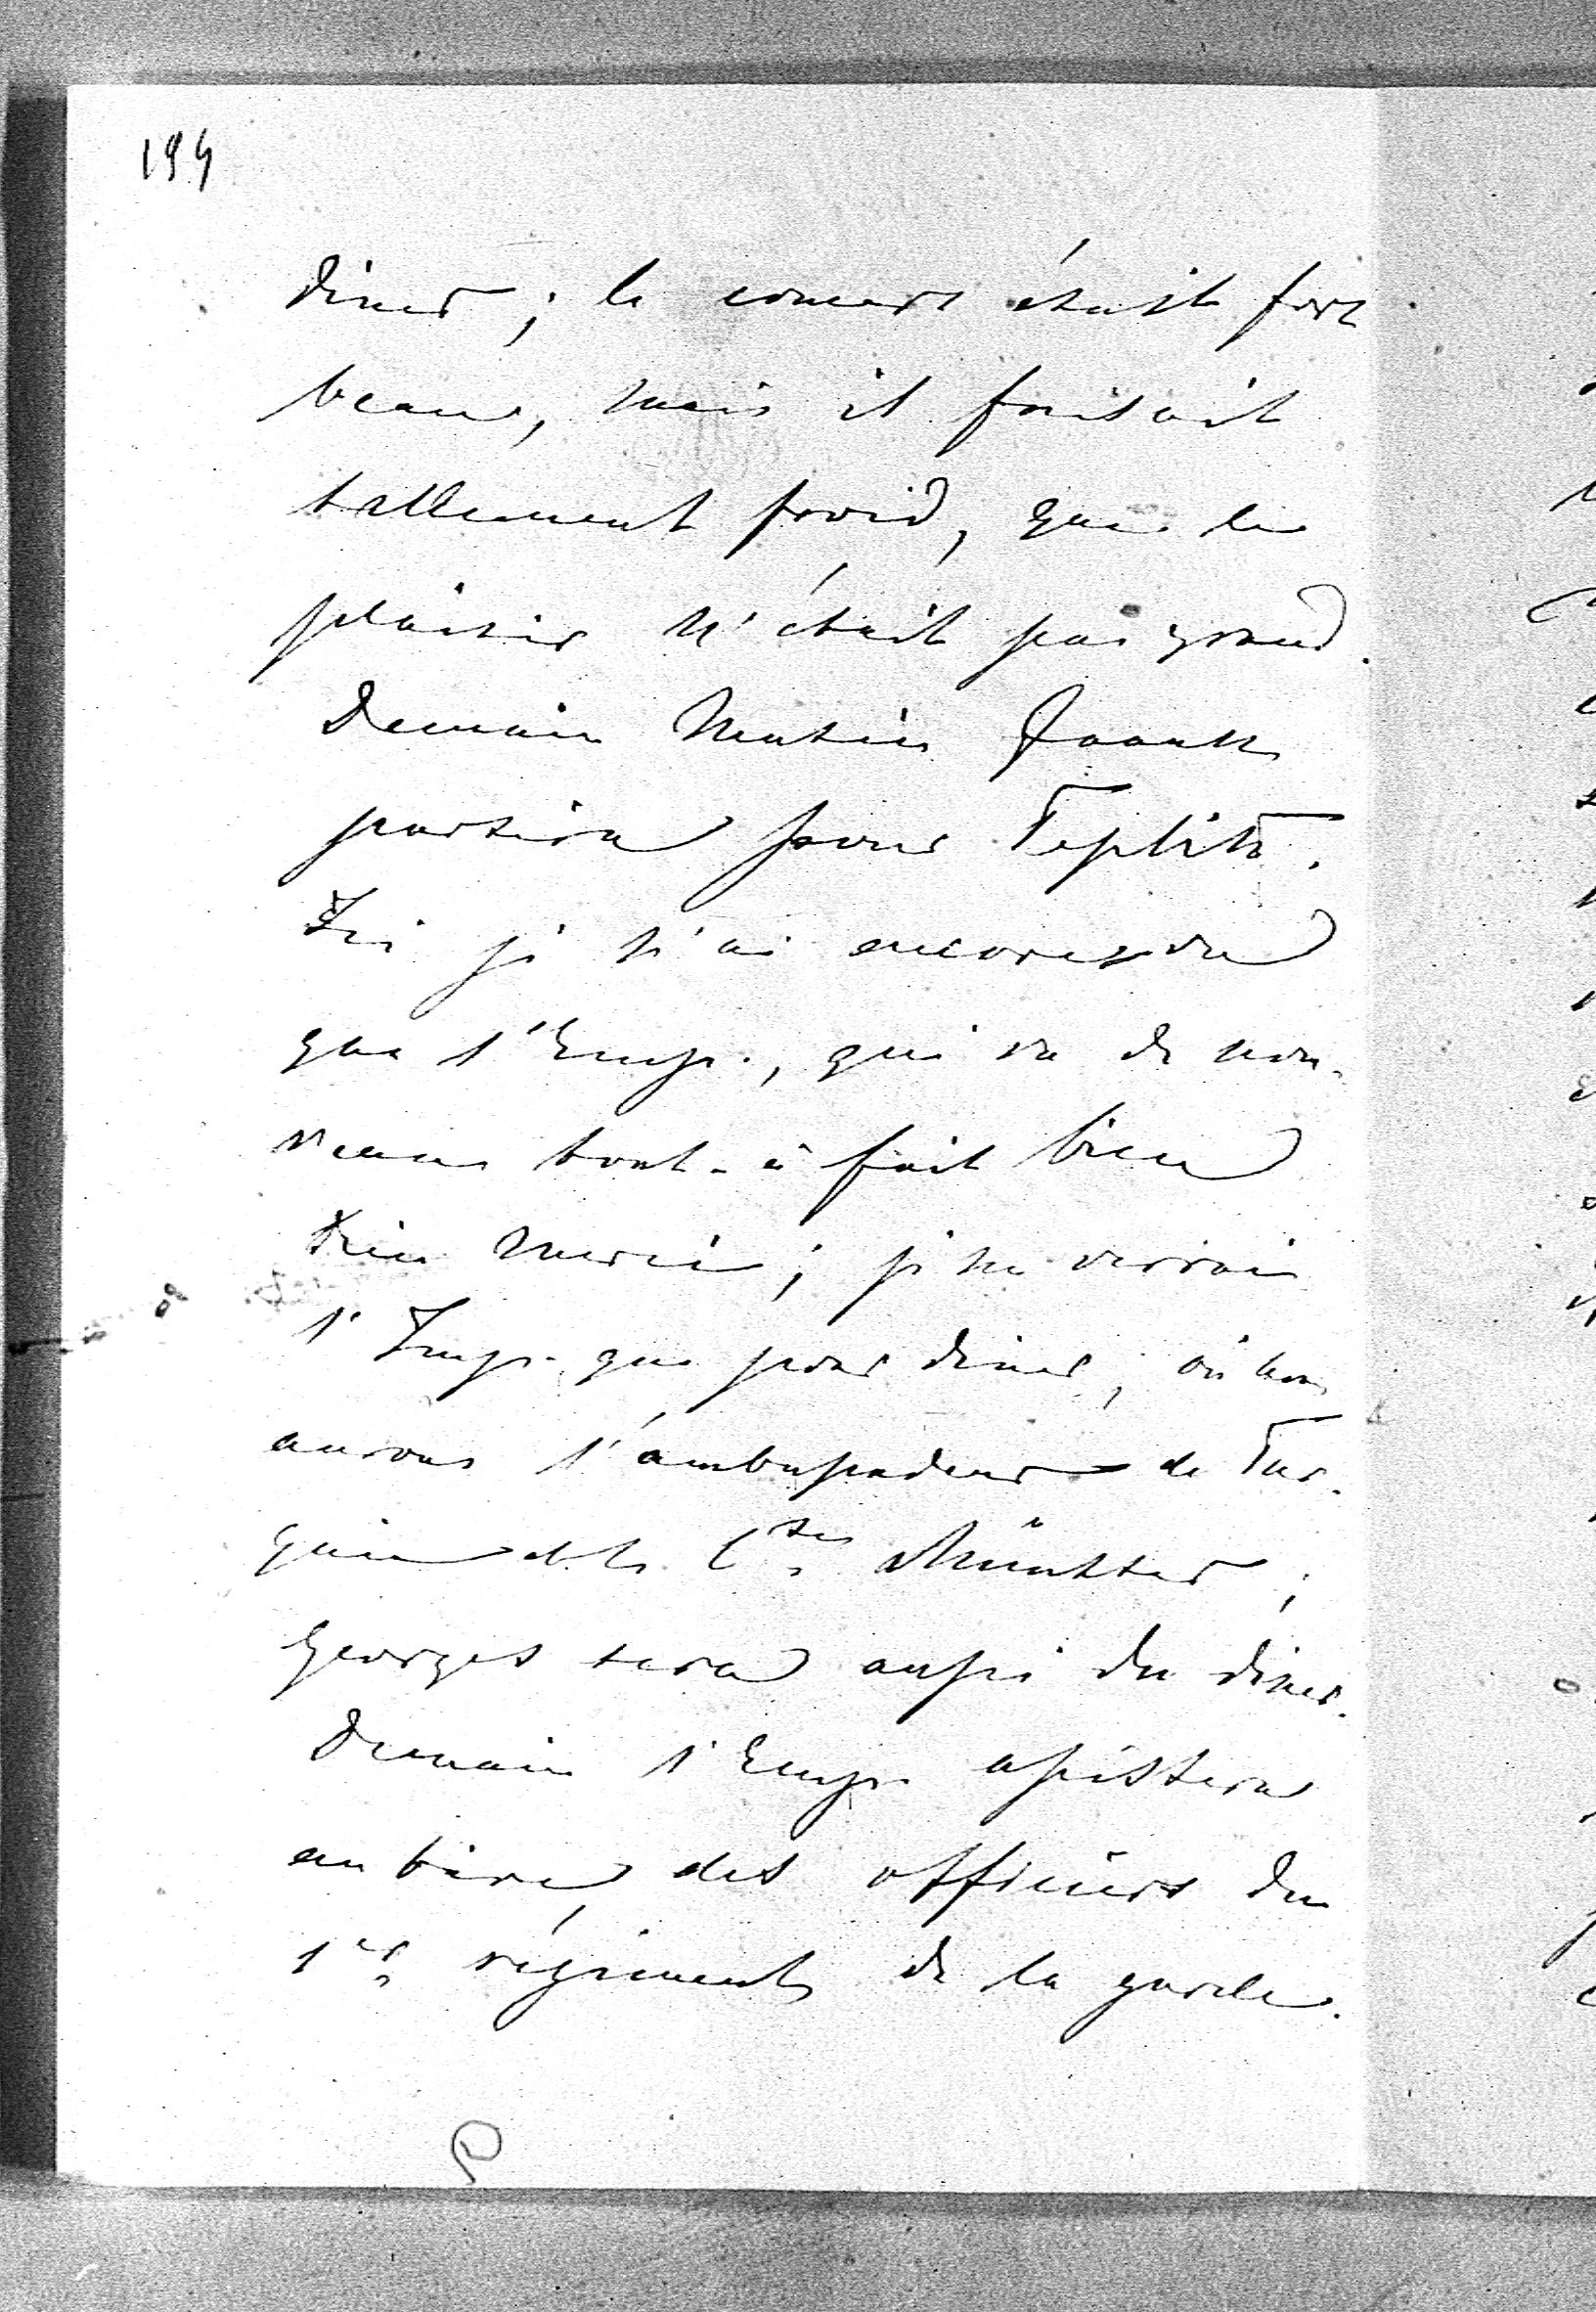 194
diner; le concert était fort
beau, mais il faisait
tellement froid, que le
plaisir n'était pas grand.
Demain matin
partira pour Teplitz.
Ici je n'ai encore vu
que l'Emp., qui va de nou-
veau tout-à fait bien
Dieu merci; je ne verrai
l'Imp. que pour diner, où nous
aurons l'ambassadeur de Tur-
quie et le Cte Münster;
Georges sera aussi du diner.
Demain l'Emp. assistera
au tir des officiers du
1er régiment de la garde.